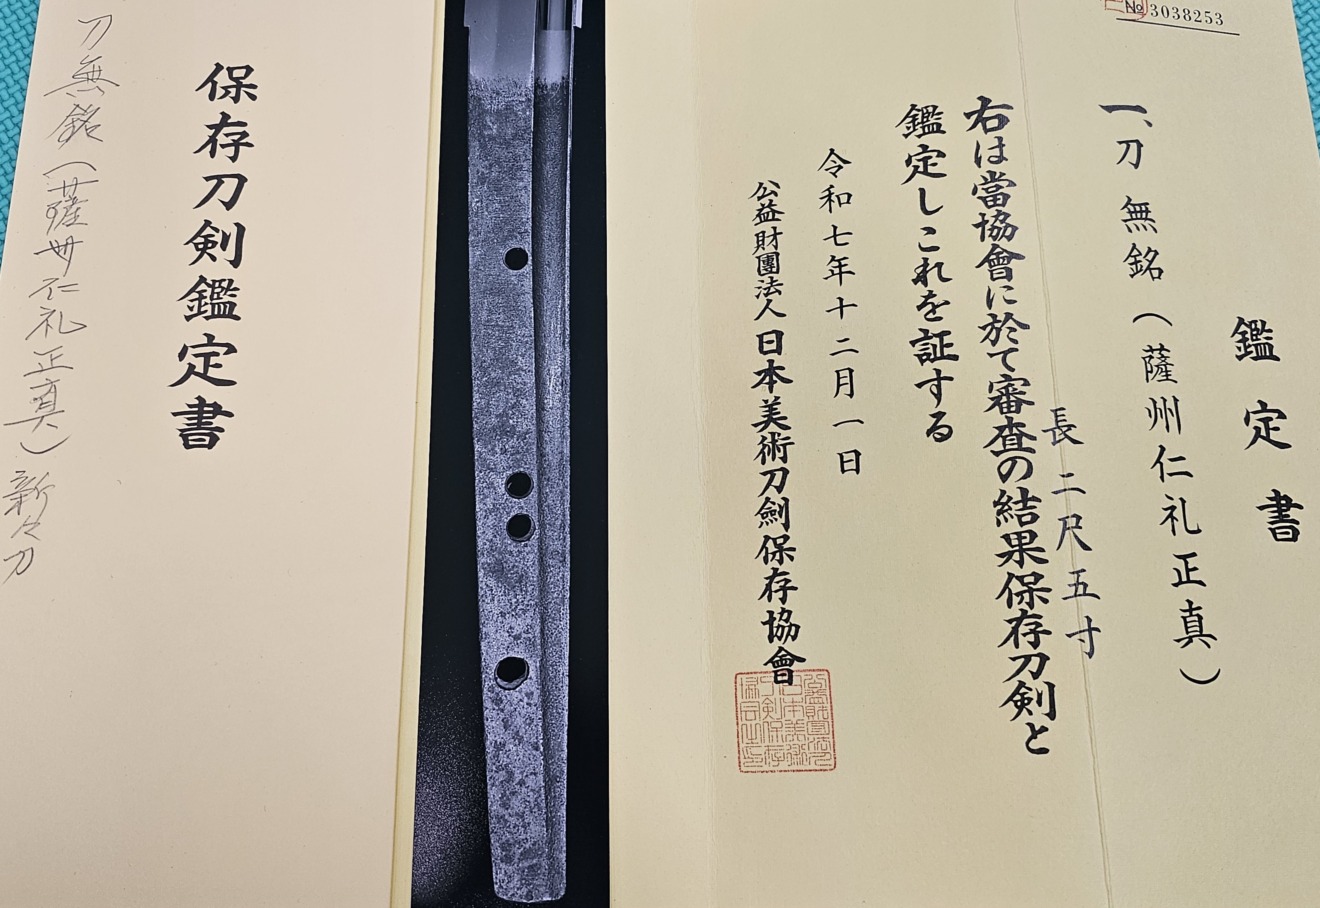 №3038253
鑑定書
一、刀 無銘(薩州仁礼正真)
長 二尺五寸
右は當協會に於て審査の結果保存刀剣と
鑑定しこれを証する
令和七年十二月一日
公益財團法人 日本美術刀劍保存協會
保存刀剣鑑定書
刀無銘(薩州仁礼正真)新々刀